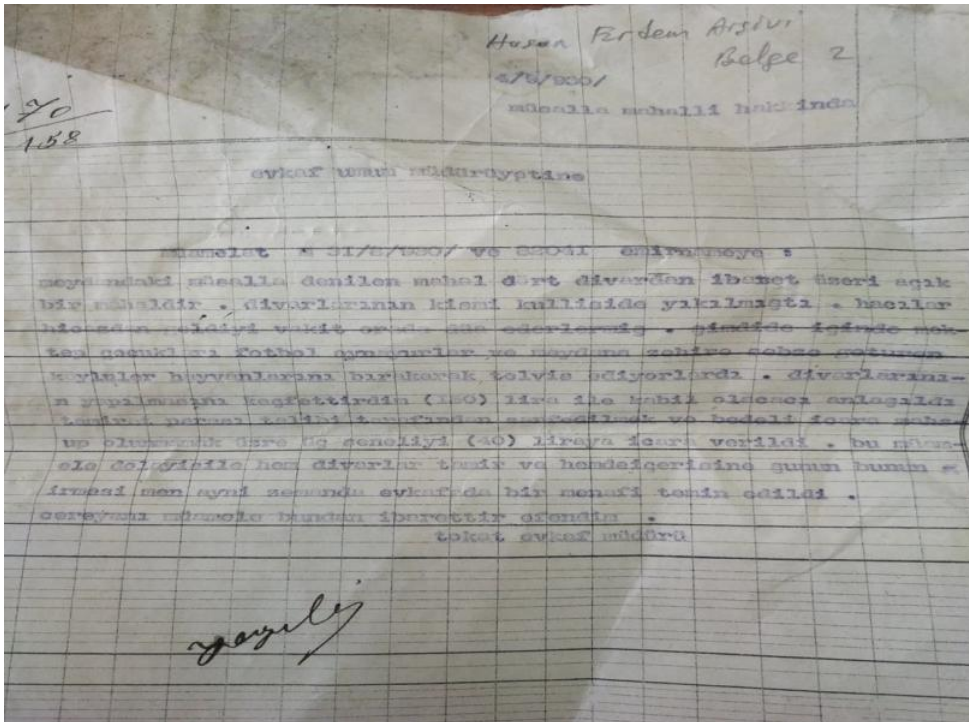 Hasan Erdem Arşivi
Belge 2
/930/
70
158
müsalla mahalli hakkinda
evkaf umum müdürüyetine
Müamelat 31/8/930/ ve 82041 emirnameye :
meydandaki müsalla denilen mahal dört divardan ibaret üzeri açık
bir mahaldir . divarlarının kismi kulliside yıkılmıştı . hacılar
hicazdan geldiyi vakit orada dua ederlermiş . şimdide içinde mek-
tep çocukları fotbol oynayurlar ve meydana zehire sebze getüren
köylüler hayvanlarını bırakarak telvis ediyorlardı . divarlarını-
n yapılmasını keşfettirdim lira ile kabil olacacı anlaşıldı
tamirat parası talibi tarafından sarfedilmek ve bedeli icara mahs-
up olunmak üzre üç seneliyi (40) liraya icara verildi . bu müam-
ele dolayisile hem divarlar tamir ve hemdeiçerisine şunun bunun g-
irmesi men ayni zemanda evkafada bir menafi temin edildi .
cereyanı müamele bundan ibarettir efendim .
tokat evkaf müdürü